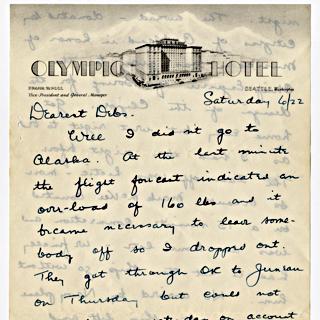 OLYMPIC HOTEL
FRANK McNULL
Vice-President and General Manager
SEATTLE, Washington
Saturday 6/22
Dearest Debs.
Well I didn't go to
Alaska. At the last minute
the flight forecast indicated an
over-load of 160 lbs and it
became necessary to leave some-
body off so I dropped out.
They got through OK to Juneau
on Thursday but could not
day on account